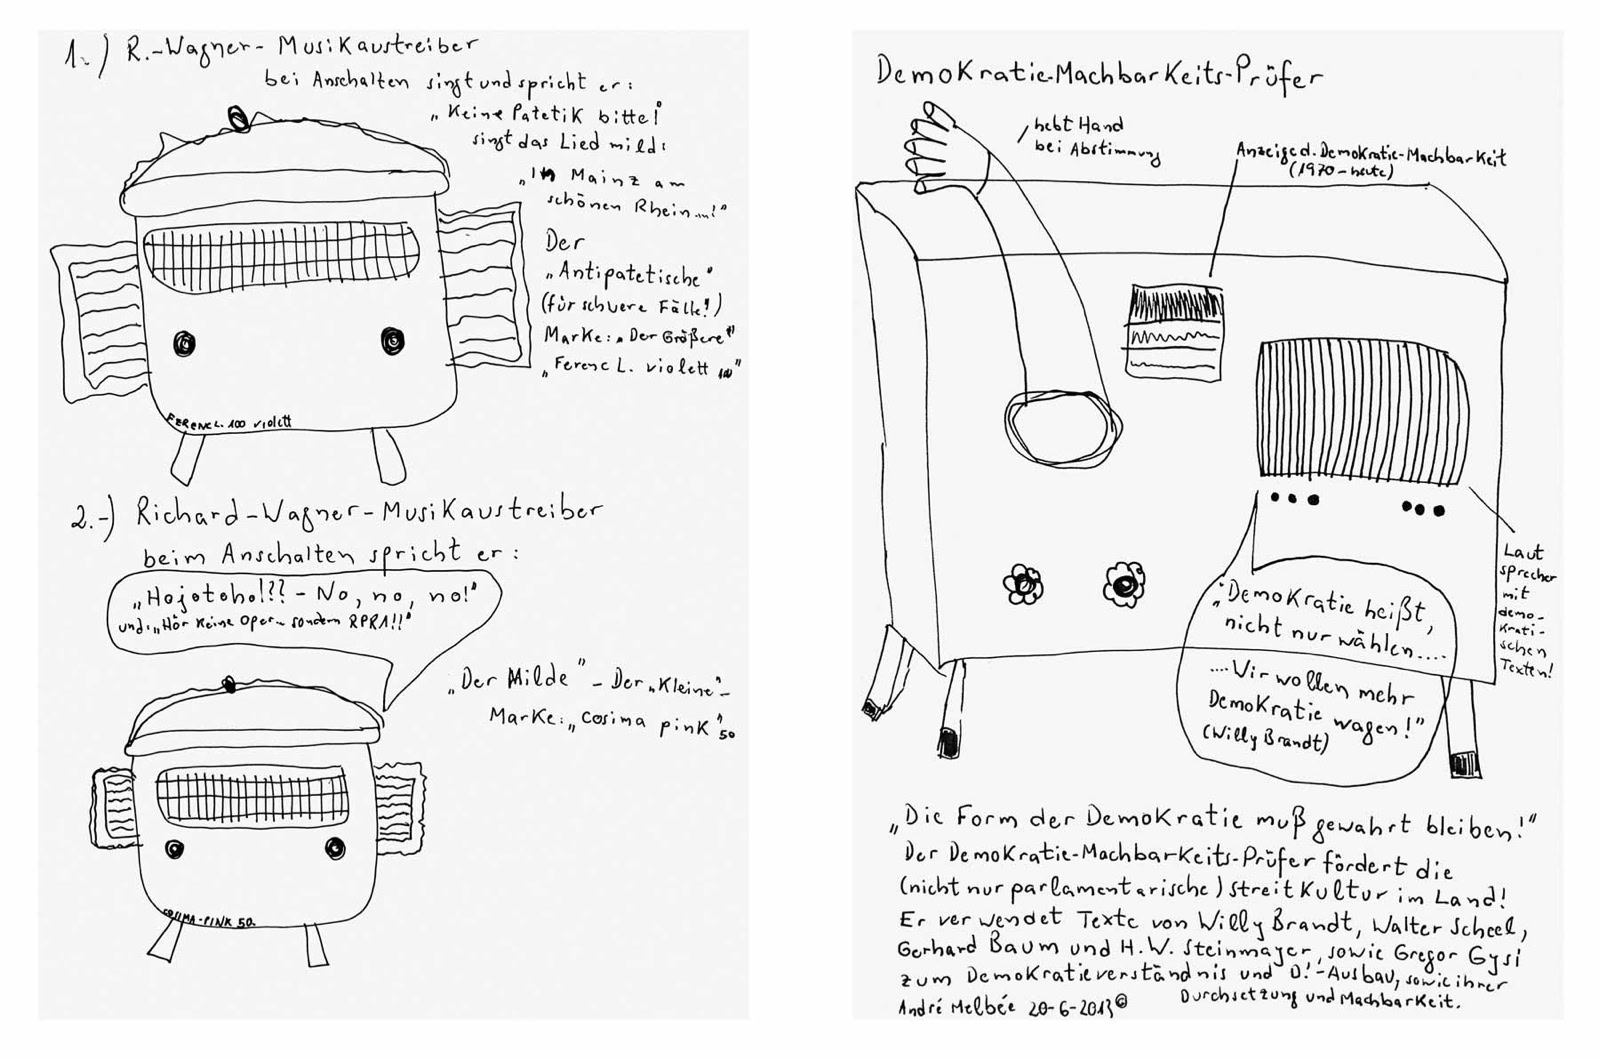 1.) R.-Wagner-Musikaustreiber
bei Anschalten singt und spricht er:
„Keine Patetik bitte!
singt das Lied mild:
„In Mainz am
schönen Rhein....!"
Der
„Antipatetische"
(für schwere Fälle!)
Marke: „Der Größere"
„Ferenc L. violett 100"
FERENC L. 100 violett
2.-) Richard-Wagner-Musikaustreiber
beim Anschalten spricht er:
„Hojotoho!?? - No, no, no!"
und: „Hör keine Oper - sondern RPR1!!"
„Der Milde" - Der „Kleine" -
Marke: „Cosima pink" 50
COSIMA-PINK 50.
Demokratie-Machbarkeits-Prüfer
hebt Hand
bei Abstimmung
Anzeige d. Demokratie-Machbarkeit
(1970-heute)
Laut
sprecher
mit
demo-
krati-
schen
Texten!
„Demokratie heißt,
nicht nur wählen....
....Wir wollen mehr
Demokratie wagen!"
(Willy Brandt)
„Die Form der Demokratie muß gewahrt bleiben!"
Der Demokratie-Machbarkeits-Prüfer fördert die
(nicht nur parlamentarische) Streitkultur im Land!
Er verwendet Texte von Willy Brandt, Walter Scheel,
Gerhard Baum und H.W. Steinmayer, sowie Gregor Gysi
zum Demokratieverständnis und D!-Ausbau, sowie ihrer
Durchsetzung und Machbarkeit.
André Melbée 20-6-2013©